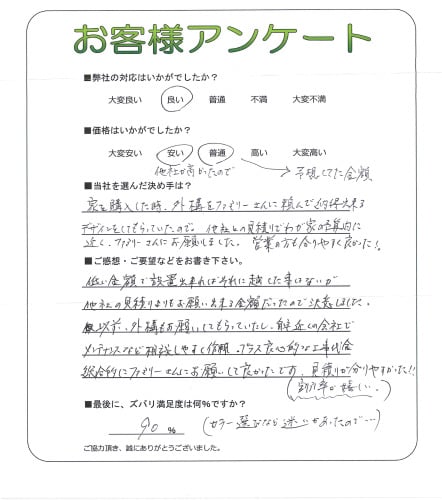 お客様アンケート
■弊社の対応はいかがでしたか?
大変良い 良い 普通 不満 大変不満
■価格はいかがでしたか?
大変安い 安い 普通 高い 大変高い
他社が高かったので 予想してた金額
■当社を選んだ決め手は?
家を購入した時、外構をファミリーさんに頼んで納得出来る
デザインをしてもらっていたので。他社との見積りでわが家の予算内に
近く、ファミリーさんにお願いしました。営業の方も分りやすく良かった!!
■ご感想・ご要望などをお書き下さい。
低い金額で設置出来ればそれに越した事はないが
他社の見積りよりもお願い出来る金額だったので決意しました。
以前、外構もお願いしてもらっていたし、近くの会社で
メンテナンスなど相談しやすく信頼。プラス良心的な工事代金
総合的にファミリーさんにお願いして良かったです。見積りが分りやすかった!!
(割引率が嬉しい。)
■最後に、ズバリ満足度は何%ですか?
90 % (カラー選びなど迷いがあったので…)
ご協力頂き、誠にありがとうございました。